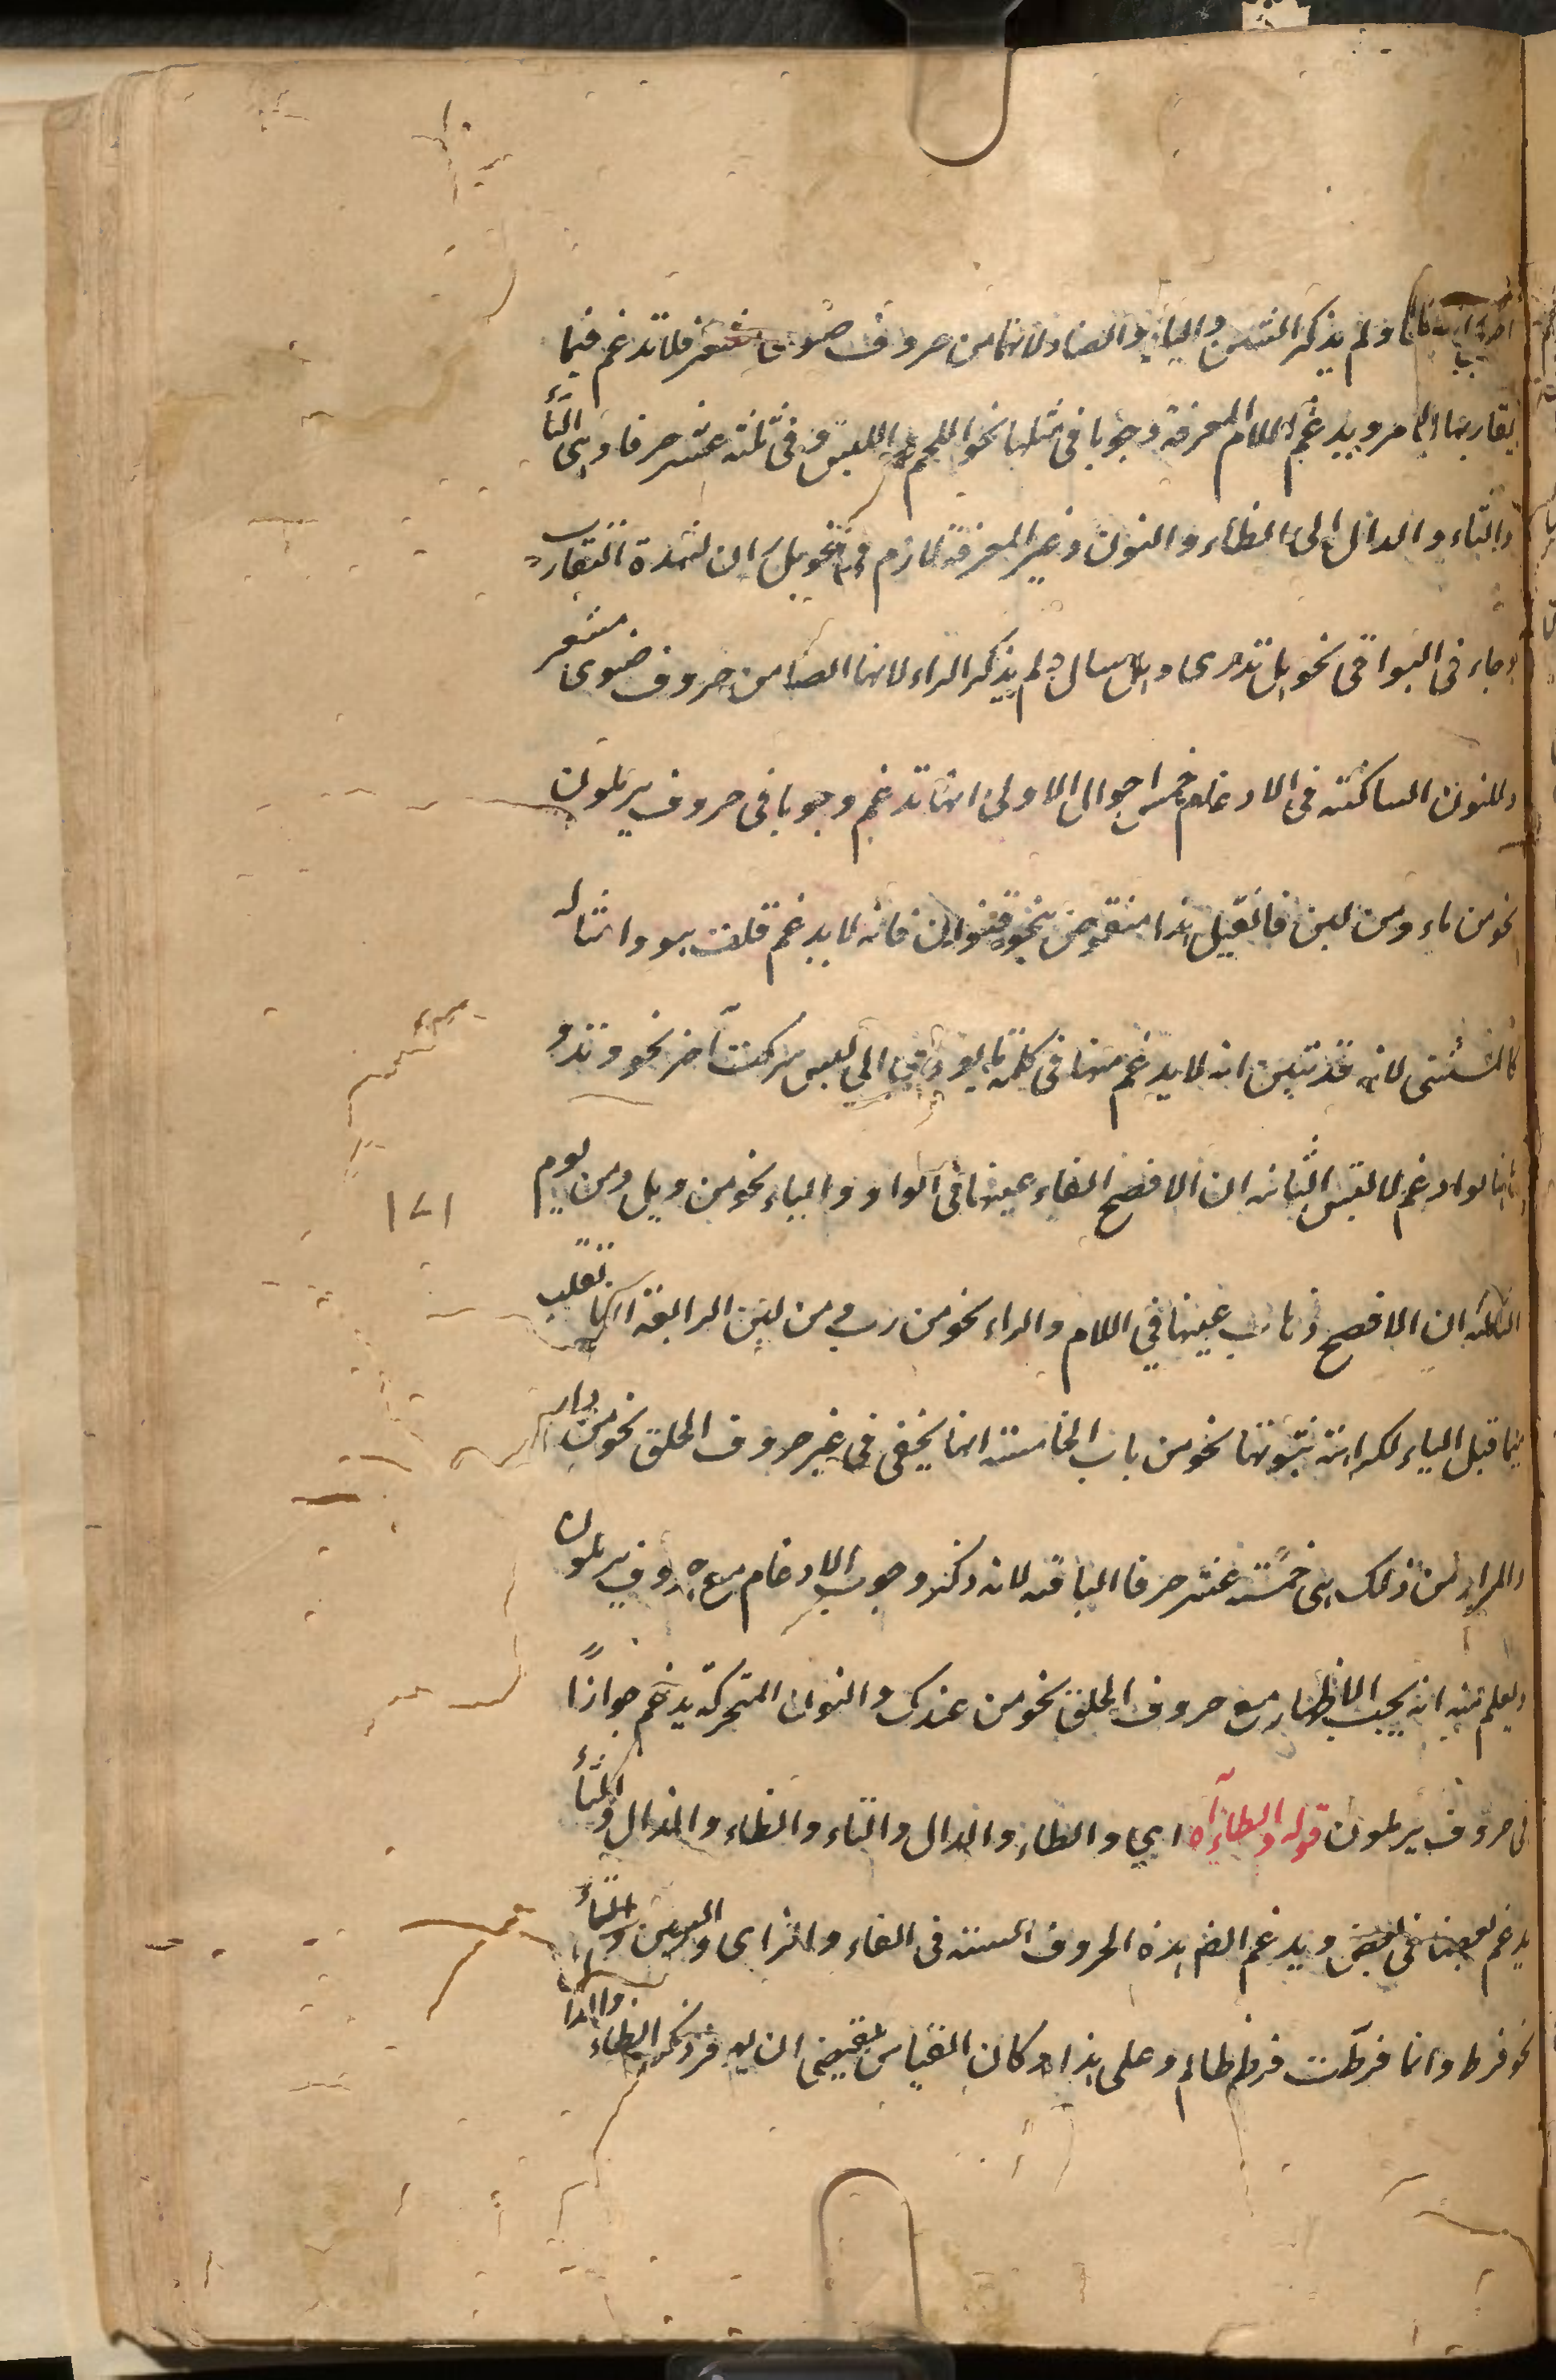 ولم يذكر الشين والياء والضاد لانها من حروف ضوى مشفر فلا تدغم فيما
يقاربها لما مر ويدغم اللام المعرفة وجوبا في مثلها نحو اللحم و اللبن و في ثلثة عشر حرفا وهى التاء
والثاء والدال الى الظاء والنون وغير المعرفة لازم في نحو بل ران لشدة التقارب
وجاء في البواقى نحو بل تدرى وبل سال ولم يذكر الراء لانها ايضا من حروف ضوى مشفر
وللنون الساكنة في الادغام خمس احوال الاولى انها تدغم وجوبا في حروف يرملون
نحو من ماء ومن لبن فان قيل هذا منقوض بنحو قنوان فانه لا يدغم قلت هو وامثاله
كالمستثنى لانه قد تبين انه لا يدغم منها في كلمة ما يودى الى لبس بتركيب آخر نحو وتد و
لو ادغم لالتبس الثانية ان الافصح ابقاء غنتها في الواو والياء نحو من ويل ومن يوم
الثالثة ان الافصح ذهاب غنتها في اللام والراء نحو من رب ومن لبن الرابعة انها تقلب
ميما قبل الباء لكراهة نبرتها نحو من باب الخامسة انها يخفى في غير حروف الحلق نحو من دار
والمراد من ذلك هى خمسة عشر حرفا الباقية لانه ذكر وجوب الادغام مع حروف يرملون
ويعلم منه انه يجب الاظهار مع حروف الحلق نحو من عندك والنون المتحركة يدغم جوازا
في حروف يرملون قوله والطاء آه اي والطاء والدال والتاء والظاء والذال والثاء
يدغم بعضها في بعض ويدغم ايضا هذه الحروف الستة في الصاد والزاى والسين
نحو فرط وانما فرطت فرط ظالم وعلى هذا وكان القياس يقتضى ان
١٧١